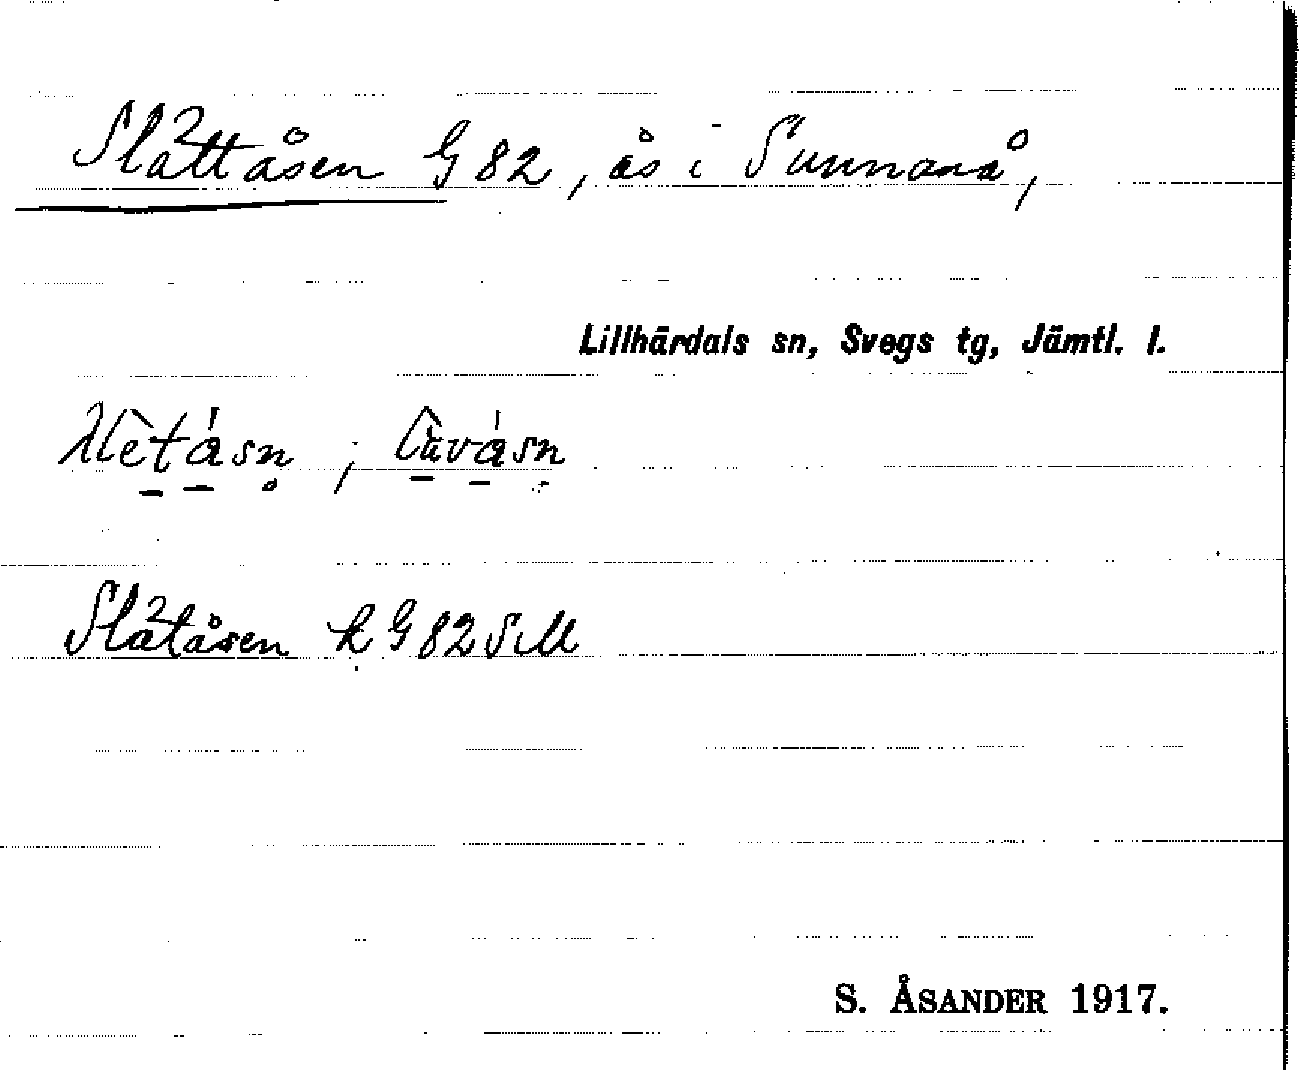 Slåttåsen G 82, ås i Sunnanå,
Lillhärdals sn, Svegs tg, Jämtl. l.
Slåtåsen k G 82 S M
S. ÅSANDER 1917.